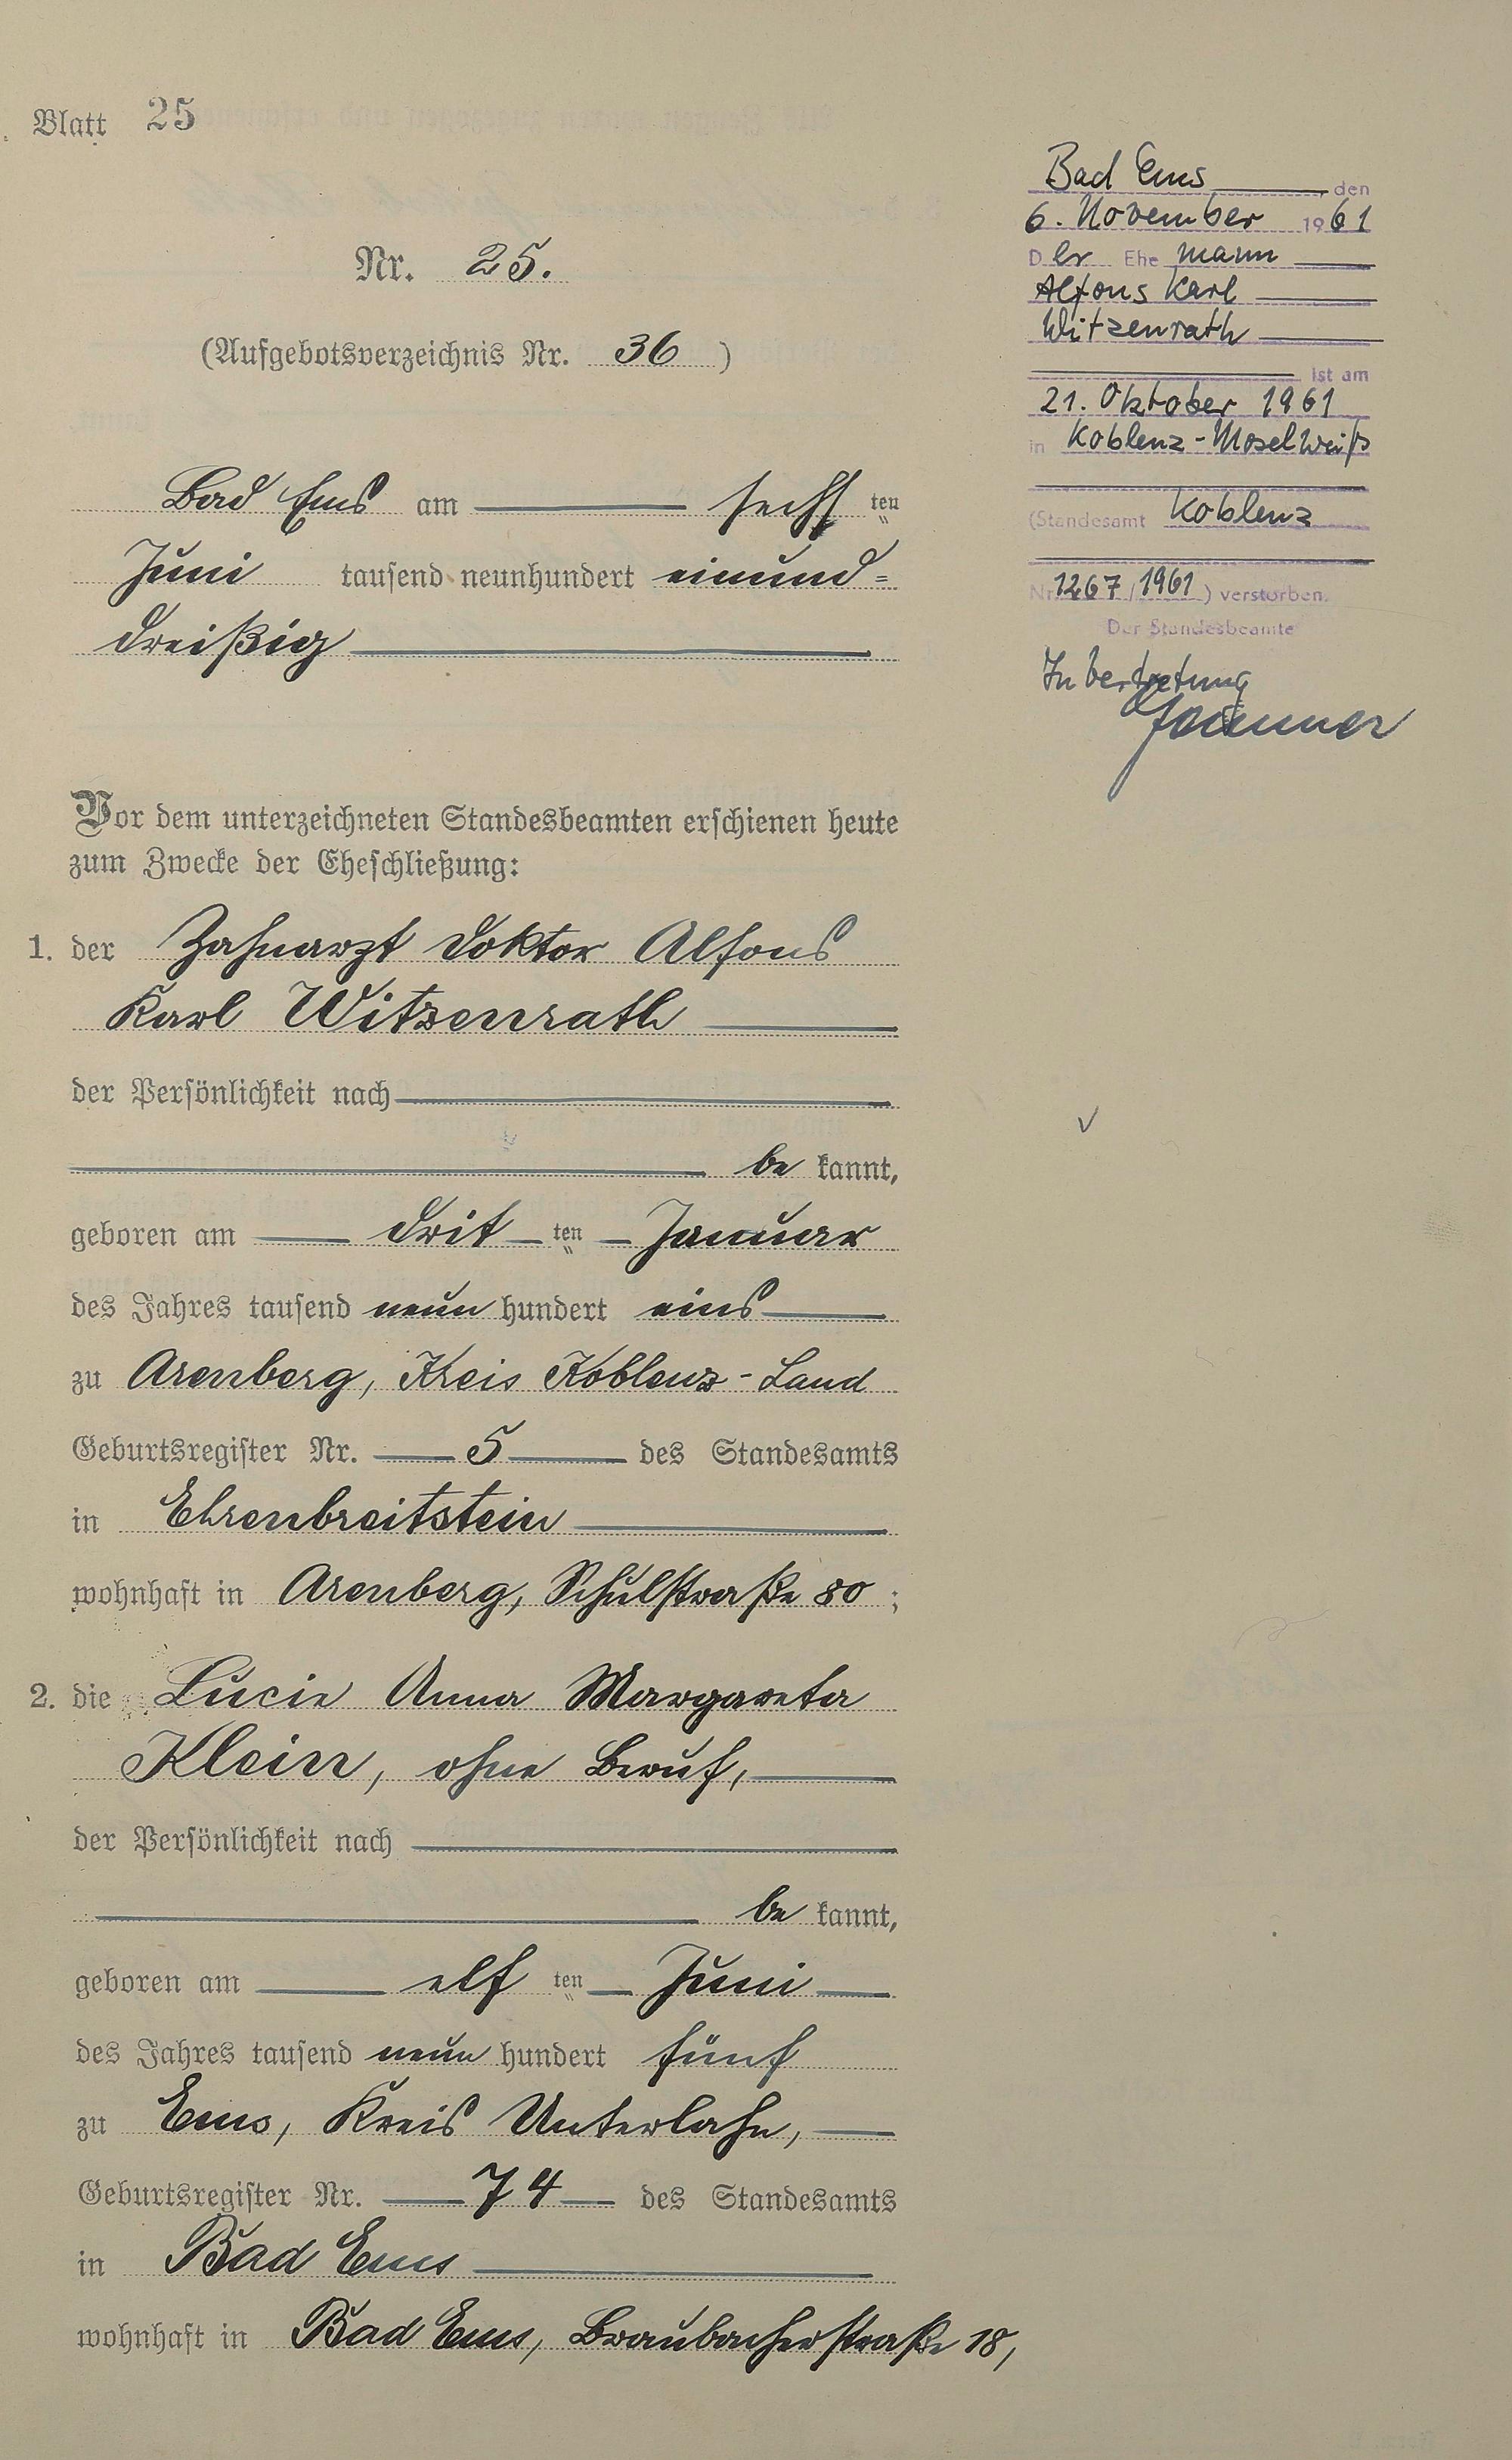 Blatt 25
Nr. 25.
(Aufgebotsverzeichnis Nr. 36)
Bad Ems am sechsten
Juni tausend neunhundert einund=
dreißig
Vor dem unterzeichneten Standesbeamten erschienen heute
zum Zwecke der Eheschließung:
1. der Zahnarzt Doktor Alfons
Karl Witzenrath
der Persönlichkeit nach
be kannt,
geboren am dritten Januar
des Jahres tausend neun hundert eins
zu Arenberg, Kreis Koblenz-Land
Geburtsregister Nr. 5 des Standesamts
in Ehrenbreitstein
wohnhaft in Arenberg, Schulstraße 80;
2. die Lucie Anna Margareta
Klein, ohne Beruf,
der Persönlichkeit nach
be kannt,
geboren am elften Juni
des Jahres tausend neun hundert fünf
zu Ems, Kreis Unterlahn,
Geburtsregister Nr. 74 des Standesamts
in Bad Ems
wohnhaft in Bad Ems, Braubacherstraße 18,
Bad Ems, den
6. November 1961
Der Ehe mann
Alfons Karl
Witzenrath
ist am
21. Oktober 1961
in Koblenz-Moselweiß
(Standesamt Koblenz
Nr. 1267/1961) verstorben.
Der Standesbeamte
In Vertretung